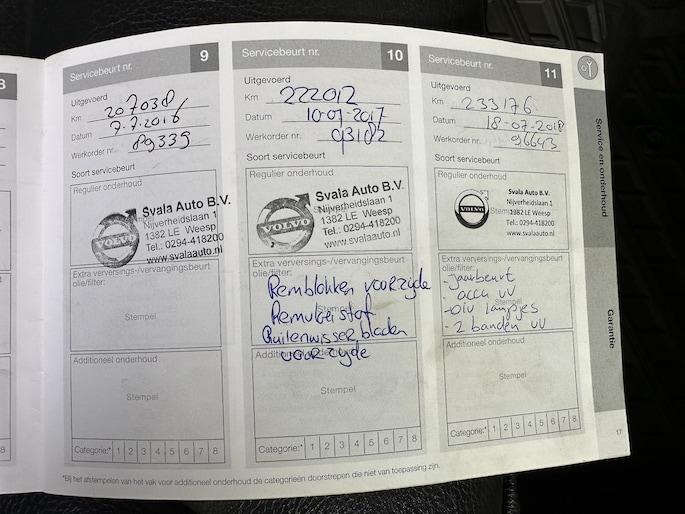 8
Servicebeurt nr. 9
Uitgevoerd
Km 207038
Datum 7-7-2016
Werkorder nr. 89339
Soort servicebeurt
Regulier onderhoud
Svala Auto B.V.
Nijverheidslaan 1
1382 LE Weesp
Tel.: 0294-418200
www.svalaauto.nl
VOLVO
Extra verversings-/vervangingsbeurt
olie/filter:
Stempel
Additioneel onderhoud
Stempel
Categorie:* 1 2 3 4 5 6 7 8
Servicebeurt nr. 10
Uitgevoerd
Km 222012
Datum 10-07-2017
Werkorder nr. 93182
Soort servicebeurt
Regulier onderhoud
Svala Auto B.V.
Nijverheidslaan 1
1382 LE Weesp
Tel.: 0294-418200
www.svalaauto.nl
VOLVO
Extra verversings-/vervangingsbeurt
olie/filter:
Remblokken voorzijde
Stempel
Remvloeistof
Ruitenwisser bladen
voorzijde
Additioneel onderhoud
Stempel
Categorie:* 1 2 3 4 5 6 7 8
Servicebeurt nr. 11
Uitgevoerd
Km 233176
Datum 18-07-2018
Werkorder nr. 96643
Soort servicebeurt
Regulier onderhoud
Svala Auto B.V.
Nijverheidslaan 1
1382 LE Weesp
Tel.: 0294-418200
www.svalaauto.nl
VOLVO
Extra verversings-/vervangingsbeurt
olie/filter:
- jaarbeurt
- accu VV
- div lampjes
- 2 banden VV
Stempel
Additioneel onderhoud
Stempel
Categorie:* 1 2 3 4 5 6 7 8
*Bij het afstempelen van het vak voor additioneel onderhoud de categorieën doorstrepen die niet van toepassing zijn.
Service en onderhoud
Garantie
17